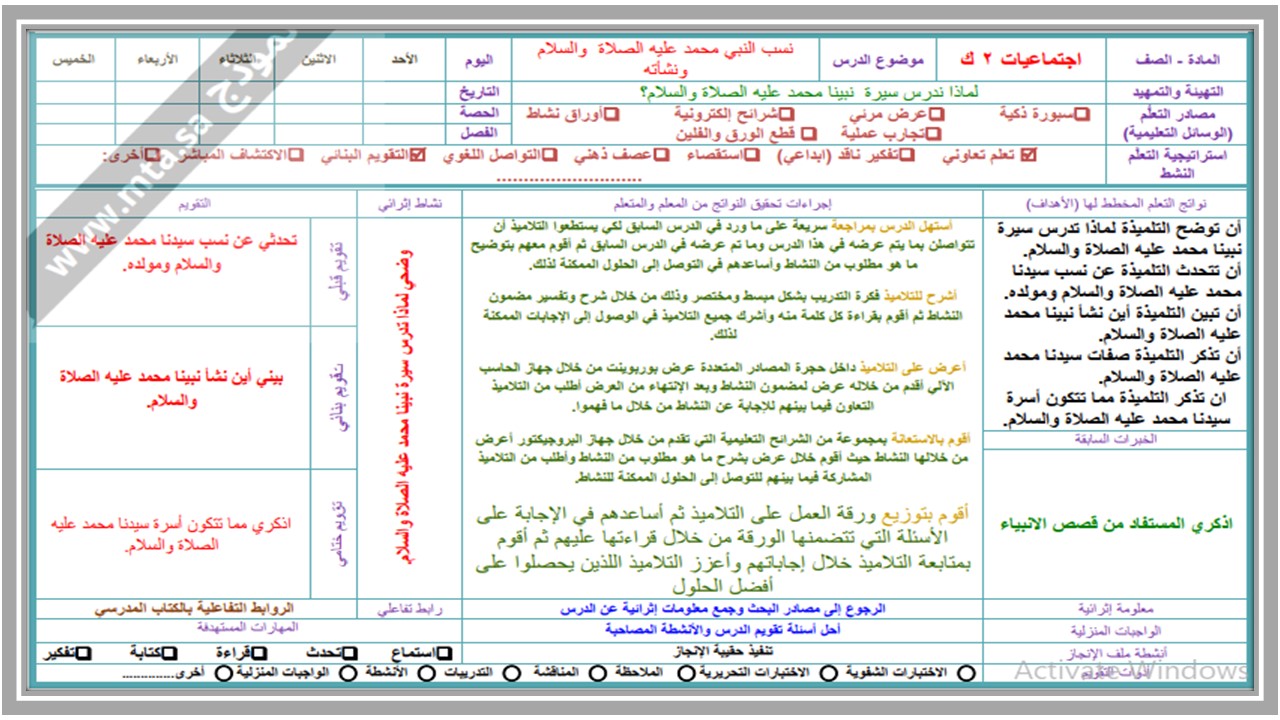 المادة - الصف
اجتماعيات ٢ ك
موضوع الدرس
نسب النبي محمد عليه الصلاة والسلام
ونشأته
اليوم
الأحد
الاثنين
الثلاثاء
الأربعاء
الخميس
التهيئة والتمهيد
لماذا ندرس سيرة نبينا محمد عليه الصلاة والسلام؟
التاريخ
مصادر التعلم
(الوسائل التعليمية)
سبورة ذكية
عرض مرئي
شرائح إلكترونية
أوراق نشاط
تجارب عملية
قطع الورق والفلين
الحصة
الفصل
استراتيجية التعلم
النشط
تعلم تعاوني
تفكير ناقد (إبداعي)
استقصاء
عصف ذهني
التواصل اللغوي
التقويم البنائي
الاكتشاف المباشر
أخرى:
...........................
نواتج التعلم المخطط لها (الأهداف)
إجراءات تحقيق النواتج من المعلم والمتعلم
نشاط إثرائي
التقويم
أن توضح التلميذة لماذا تدرس سيرة
نبينا محمد عليه الصلاة والسلام.
أن تتحدث التلميذة عن نسب سيدنا
محمد عليه الصلاة والسلام ومولده.
أن تبين التلميذة أين نشأ نبينا محمد
عليه الصلاة والسلام.
أن تذكر التلميذة صفات سيدنا محمد
عليه الصلاة والسلام.
ان تذكر التلميذة مما تتكون أسرة
سيدنا محمد عليه الصلاة والسلام.
الخبرات السابقة
اذكري المستفاد من قصص الانبياء
أستهل الدرس بمراجعة سريعة على ما ورد في الدرس السابق لكي يستطعوا التلاميذ أن
تتواصلن بما يتم عرضه في هذا الدرس وما تم عرضه في الدرس السابق ثم أقوم معهم بتوضيح
ما هو مطلوب من النشاط وأساعدهم في التوصل إلى الحلول الممكنة لذلك.
أشرح للتلاميذ فكرة التدريب بشكل مبسط ومختصر وذلك من خلال شرح وتفسير مضمون
النشاط ثم أقوم بقراءة كل كلمة منه وأشرك جميع التلاميذ في الوصول إلى الإجابات الممكنة
لذلك.
أعرض على التلاميذ داخل حجرة المصادر المتعددة عرض بوربوينت من خلال جهاز الحاسب
الآلي أقدم من خلاله عرض لمضمون النشاط وبعد الإنتهاء من العرض أطلب من التلاميذ
التعاون فيما بينهم للإجابة عن النشاط من خلال ما فهموا.
أقوم بالاستعانة بمجموعة من الشرائح التعليمية التي تقدم من خلال جهاز البروجيكتور أعرض
من خلالها النشاط حيث أقوم خلال عرض بشرح ما هو مطلوب من النشاط وأطلب من التلاميذ
المشاركة فيما بينهم للتوصل إلى الحلول الممكنة للنشاط.
أقوم بتوزيع ورقة العمل على التلاميذ ثم أساعدهم في الإجابة على
الأسئلة التي تتضمنها الورقة من خلال قراءتها عليهم ثم أقوم
بمتابعة التلاميذ خلال إجاباتهم وأعزز التلاميذ اللذين يحصلوا على
أفضل الحلول
وضحي لماذا تدرس سيرة نبينا محمد عليه الصلاة والسلام.
تقويم قبلي
تحدثي عن نسب سيدنا محمد عليه الصلاة
والسلام ومولده.
تقويم بنائي
بيني أين نشأ نبينا محمد عليه الصلاة
والسلام.
تقويم ختامي
اذكري مما تتكون أسرة سيدنا محمد عليه
الصلاة والسلام.
معلومة إثرائية
الرجوع إلى مصادر البحث وجمع معلومات إثرائية عن الدرس
رابط تفاعلي
الروابط التفاعلية بالكتاب المدرسي
الواجبات المنزلية
أحل أسئلة تقويم الدرس والأنشطة المصاحبة
المهارات المستهدفة
أنشطة ملف الإنجاز
تنفيذ حقيبة الإنجاز
استماع
تحدث
قراءة
كتابة
تفكير
أدوات التقويم
الاختبارات الشفوية
الاختبارات التحريرية
الملاحظة
المناقشة
التدريبات
الأنشطة
الواجبات المنزلية
أخرى.............
نموذج www.mta.sa
Activate Windows